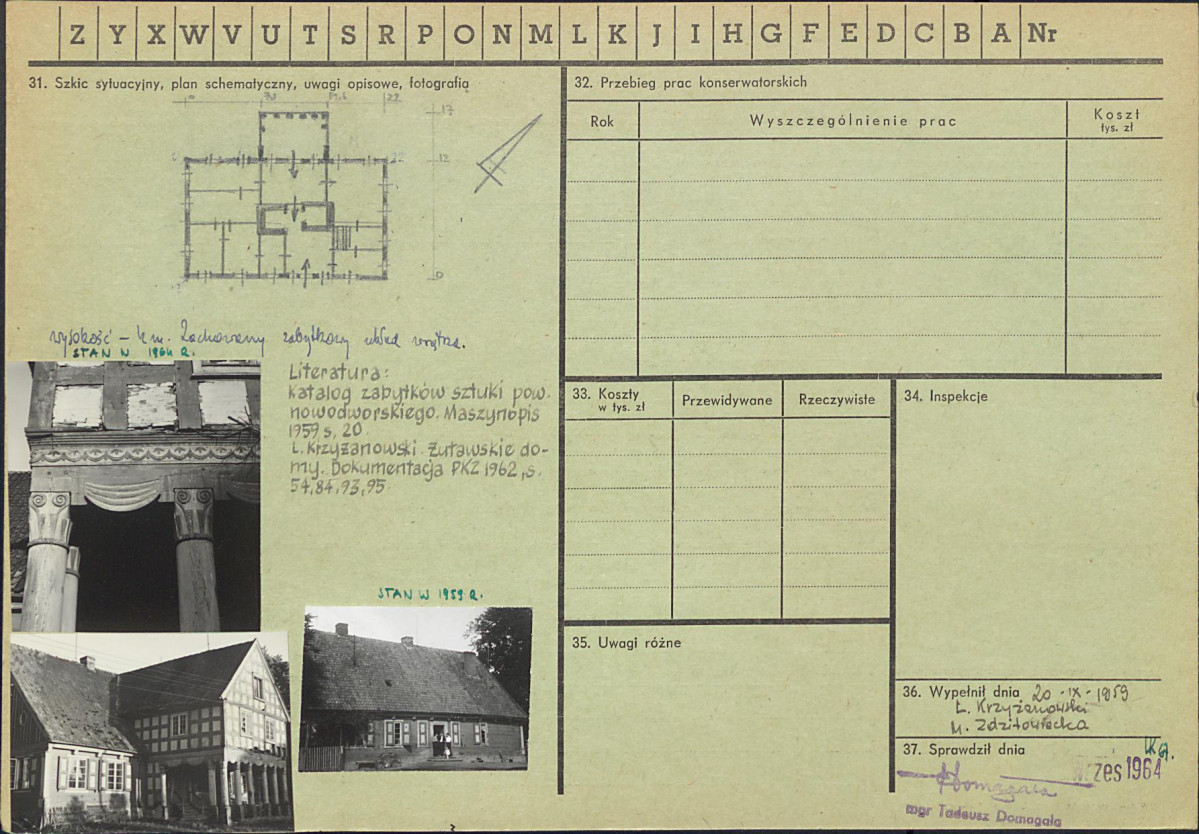 Z Y X W V U T S R P O N M L K J I H G F E D C B A Nr
31. Szkic sytuacyjny, plan schematyczny, uwagi opisowe, fotografią
0 22
17
12
0
wysokość – 4 m. Zachowany zabytkowy układ wnętrza.
STAN W 1964 R.
Literatura:
Katalog zabytków sztuki pow.
nowodworskiego. Maszynopis
1959 s. 20.
L. Krzyżanowski. Żuławskie do-
my. Dokumentacja PKZ 1962, s.
54, 84, 93, 95.
STAN W 1959 R.
32. Przebieg prac konserwatorskich
Rok Wyszczególnienie prac Koszt
tys. zł
33. Koszty
w tys. zł
Przewidywane Rzeczywiste
34. Inspekcje
35. Uwagi różne
36. Wypełnił dnia 20-IX-1959
L. Krzyżanowski
M. Zdzitowiecka
37. Sprawdził dnia
wrzes 1964
Domagała
mgr Tadeusz Domagała